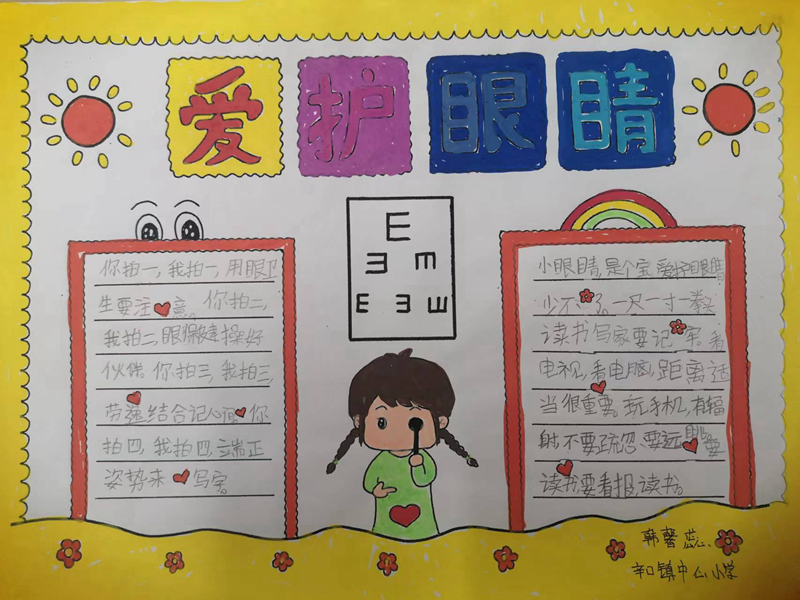 爱护眼睛
E
ヨ m
E ヨ ш
你拍一,我拍一,用眼卫
生要注意。你拍二,
我拍二,眼保健操好
伙伴 你拍三,我拍三,
劳逸结合记心间 你
拍四,我拍四,端正
姿势来写字。
小眼睛,是个宝,爱护眼睛
少不了。一尺一寸一拳头
读书写字要记牢。看
电视,看电脑,距离适
当很重要,玩手机,有辐
射,不要疏忽 要远
读书要看报,读书。
韩馨蕊
辛口镇中心小学